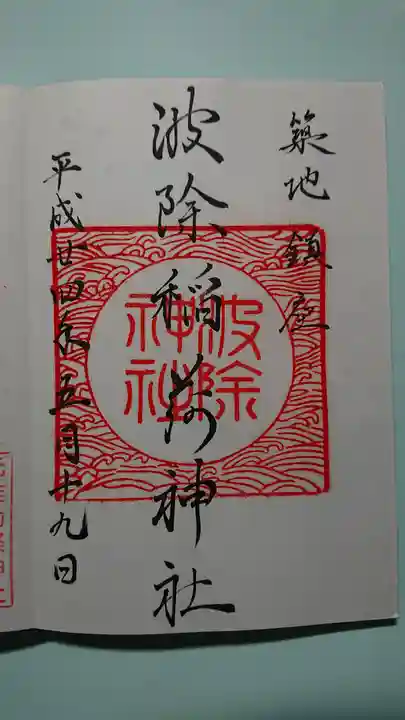 築地鎮座
波除稲荷神社
波除
神社
平成廿四年五月十九日